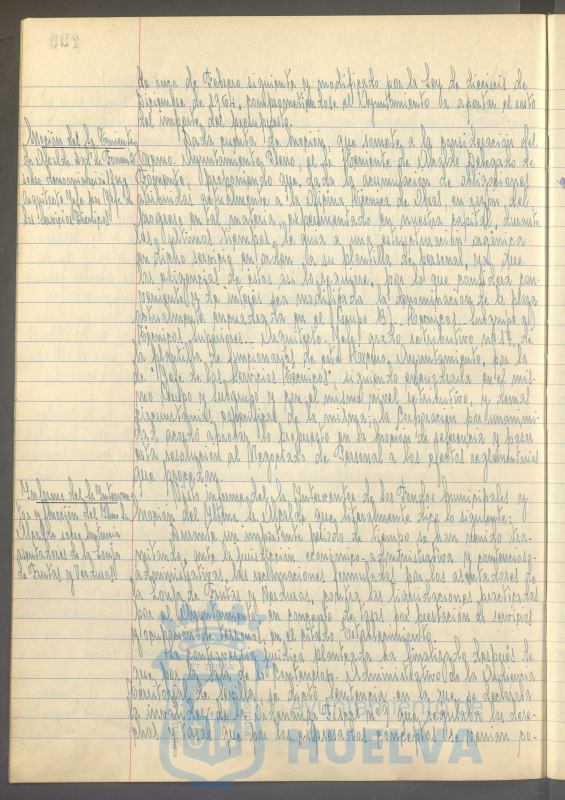 de once de Febrero siguiente y modificado por la Ley de dieciseis de
Diciembre de 1964, comprometiendose el Ayuntamiento la aportar el resto
del importe del presupuesto.
Moción del Sr. Teniente
de Alcalde Del. de Fomento
sobre denominación Arquitecto Jefe por Jefe de
los Servicios Técnicos.
Dada cuenta de Moción, que somete a la consideración del
Excmo. Ayuntamiento Pleno, el Sr. Teniente de Alcalde Delegado de
Fomento, proponiendo que dada la acumulación de obligaciones
atribuidas actualmente a la Oficina Técnica de Obras, en razón del
progreso en tal materia experimentado en nuestra capital, durante
los últimos tiempos, se una estructuración orgánica
en dicho servicio en orden a su plantilla de personal, ya que
las exigencias de éstos así lo requieren, por lo que considera con-
veniente y de interés sea modificada la denominación de la plaza
actualmente encuadrada en el Grupo B).- Técnicos. Subgrupo a)
Técnicos Superiores.- Arquitecto Jefe, grado retributivo nº de
la plantilla de funcionarios de este Excmo. Ayuntamiento, por la
de "Jefe de los Servicios Técnicos", siguiendo encuadrada en el mis-
mo Grupo y subgrupo y con el mismo nivel retributivo, y demás
circunstancias específicas de la misma; la Corporación por unanimi-
dad, acordó aprobar lo propuesto en la moción de referencia y pasar
esta resolución al Negociado de Personal a los efectos reglamentarios
que procedan.
Informe del Sr. Interven-
tor y Moción del Iltmo. Sr.
Alcalde sobre
asentadores de la Lonja
de Frutas y Verduras.
Visto informe del Sr. Interventor de los Fondos Municipales y
Moción del Iltmo. Sr. Alcalde que literalmente dice lo siguiente:
Durante un importante período de tiempo se han venido tra-
mitando, ante la jurisdicción económico-administrativa y contencioso-
administrativas, las reclamaciones formuladas por los asentadores de
la Lonja de Frutas y Verduras, contra las liquidaciones practicadas
por el Ayuntamiento en concepto de tasas por prestación de servicios
y ocupación de terrenos, en el citado Establecimiento.
La controversia jurídica planteada ha finalizado después de
que por la Sala de lo Contencioso-Administrativo de la Audiencia
Territorial de Sevilla se dictó sentencia en la que se declaraba
la invalidez de la Ordenanza Fiscal nº que regulaba los dere-
chos y tasas que por los expresados conceptos se venían co-
Ayuntamiento de
HUELVA